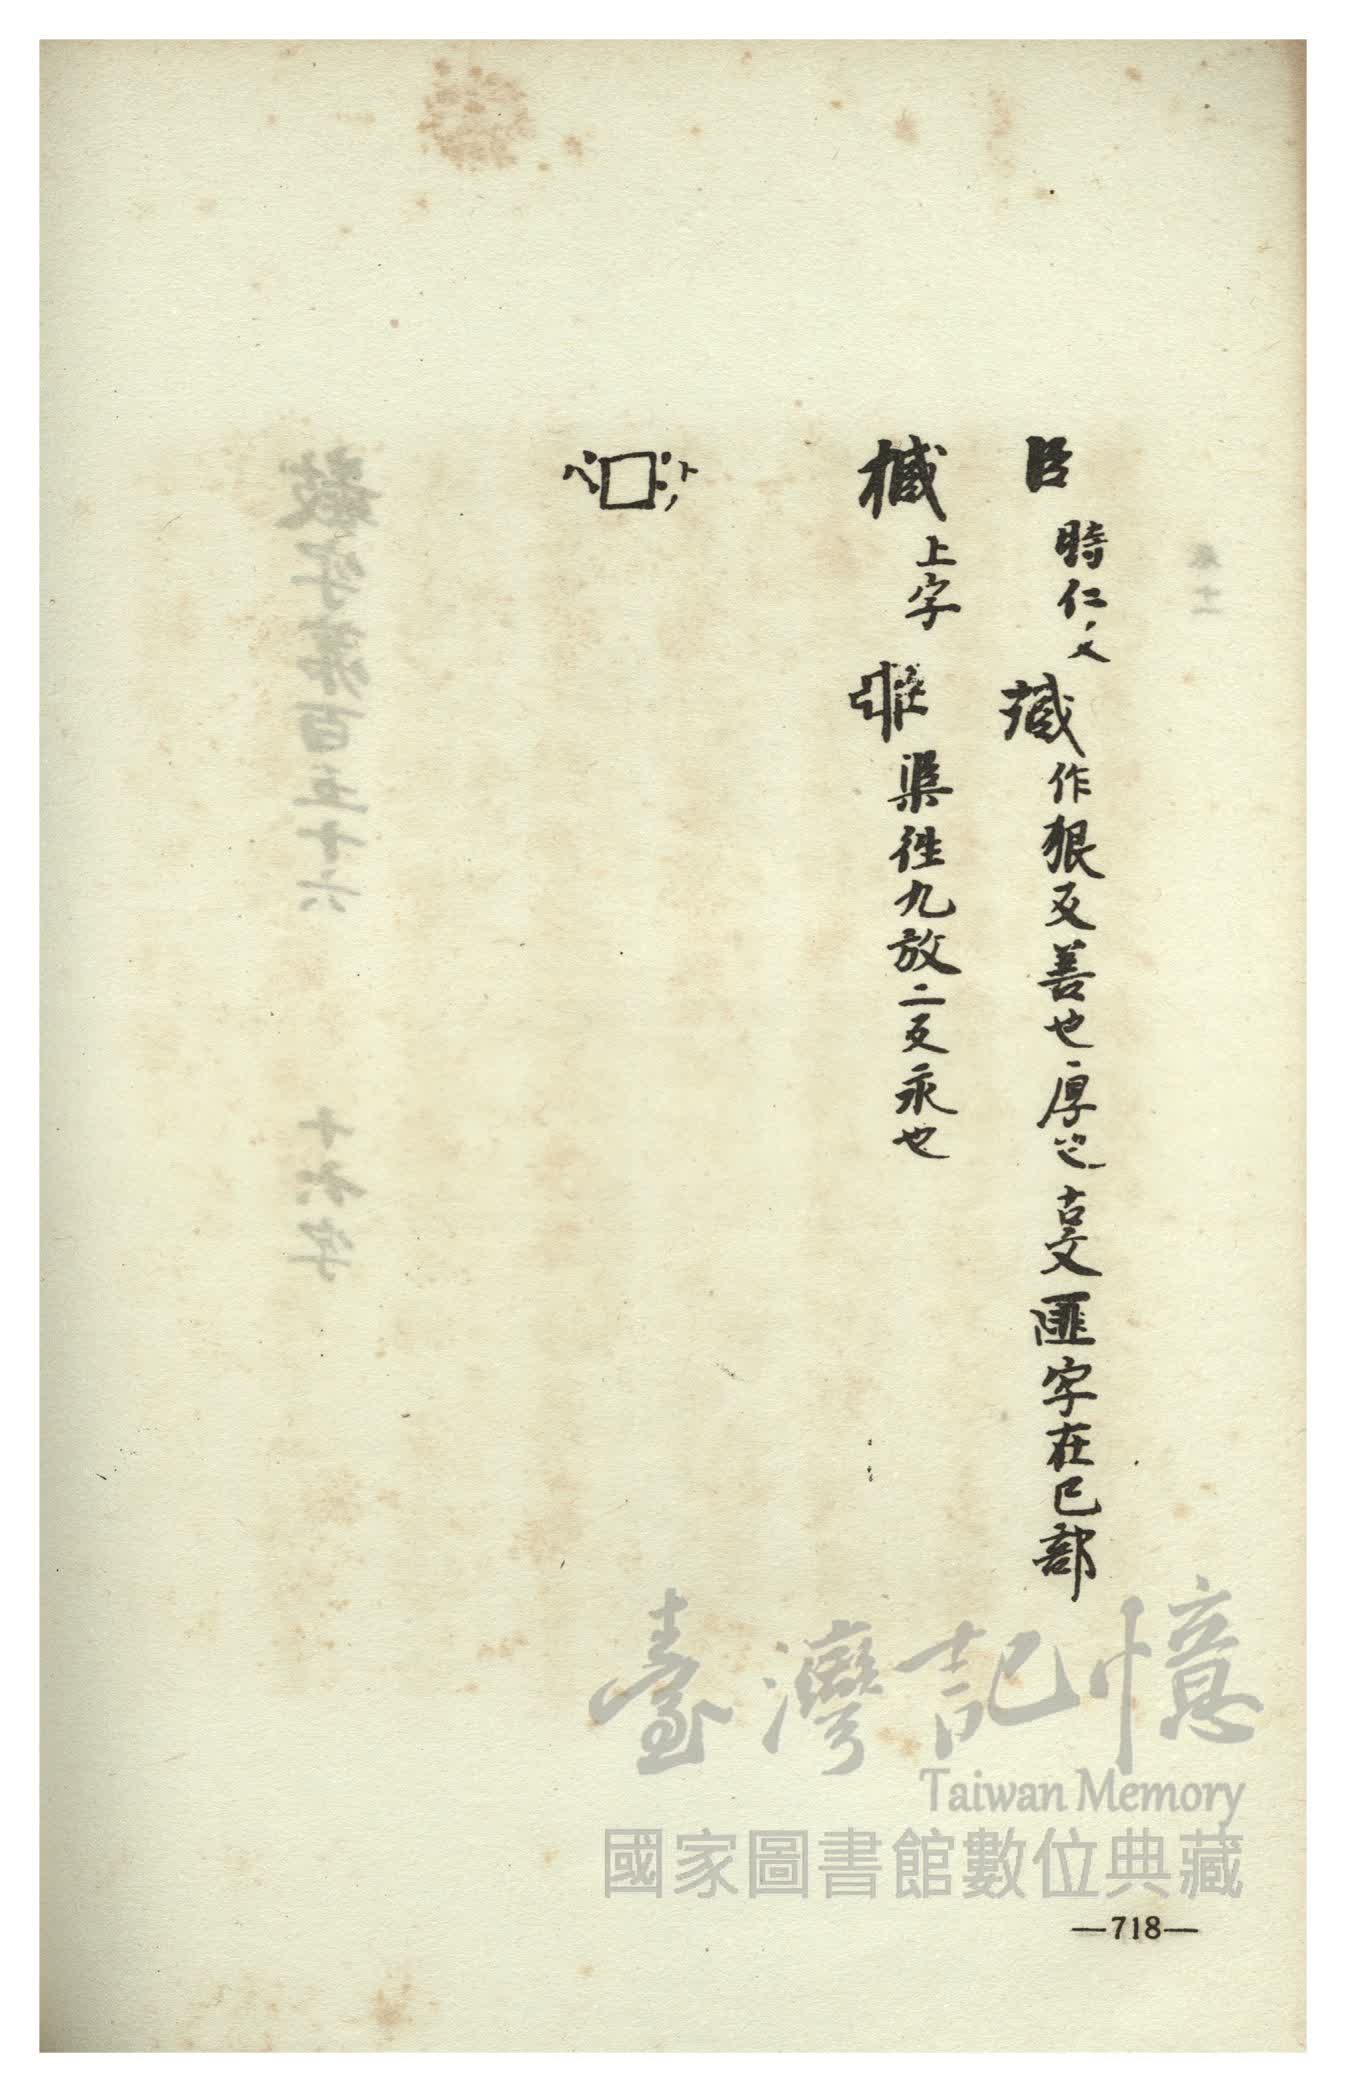 臣 時仁反 臧 作狠反善也厚也 古文 匯字在巳部
上字 渠往九放二反永也
臺灣記憶
Taiwan Memory
國家圖書館數位典藏
—718—